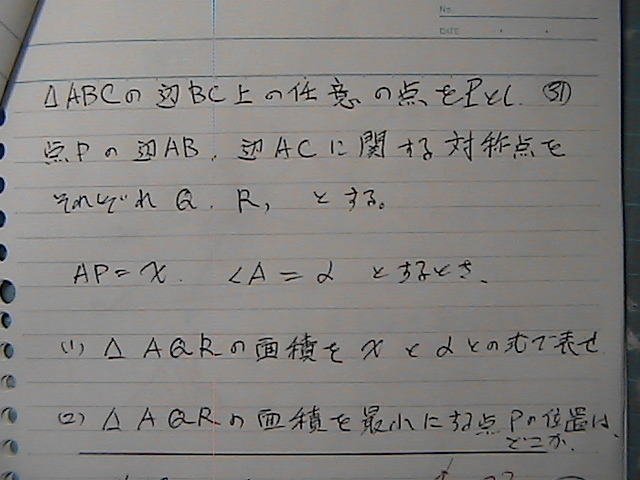 No.
DATE
△ABCの辺BC上の任意の点をPとし ㉛
点Pの辺AB、辺ACに関する対称点を
それぞれ Q、R、とする。
AP=x、∠A=α とするとき、
(1) △AQRの面積を x と α との式で表せ
(2) △AQRの面積を最小にする点Pの位置は、
どこか、